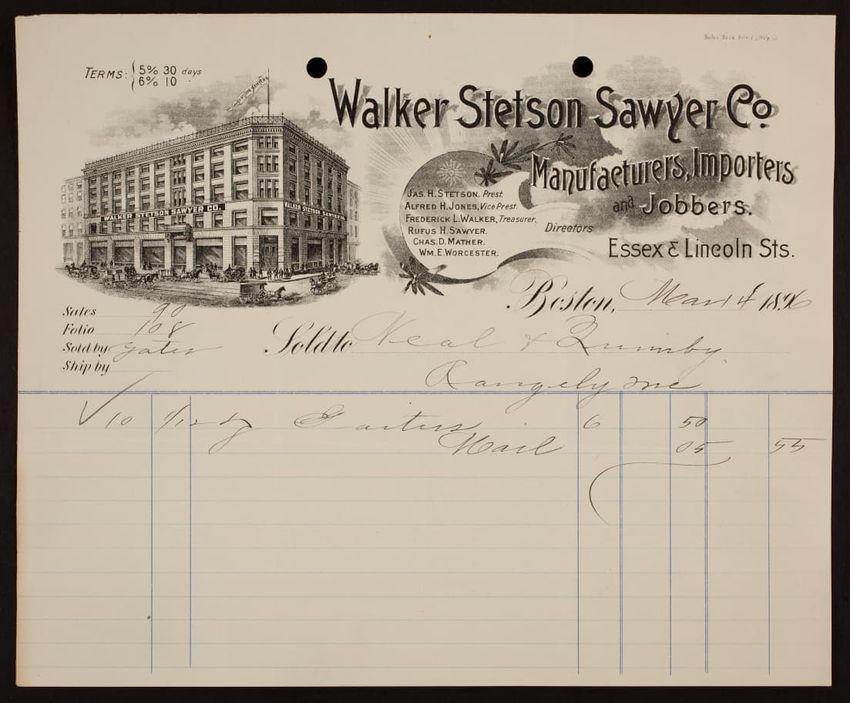 TERMS: 5% 30 days
6% 10 "
WALKER STETSON SAWYER CO.
WALKER STETSON SAWYER
Walker Stetson Sawyer Co.
Manufacturers, Importers
and Jobbers.
Essex & Lincoln Sts.
JAS. H. STETSON, Prest.
ALFRED H. JONES, Vice Prest.
FREDERICK L. WALKER, Treasurer.
RUFUS H. SAWYER.
CHAS. D. MATHER.
WM. E. WORCESTER.
Directors
Boston, Mar 4 1896
Sales 90
Folio 108
Sold by Yates
Ship by
Sold to Neal & Quimby
Rangely Me
10 1/12 dz Gaiters 6 50
Mail 05 55